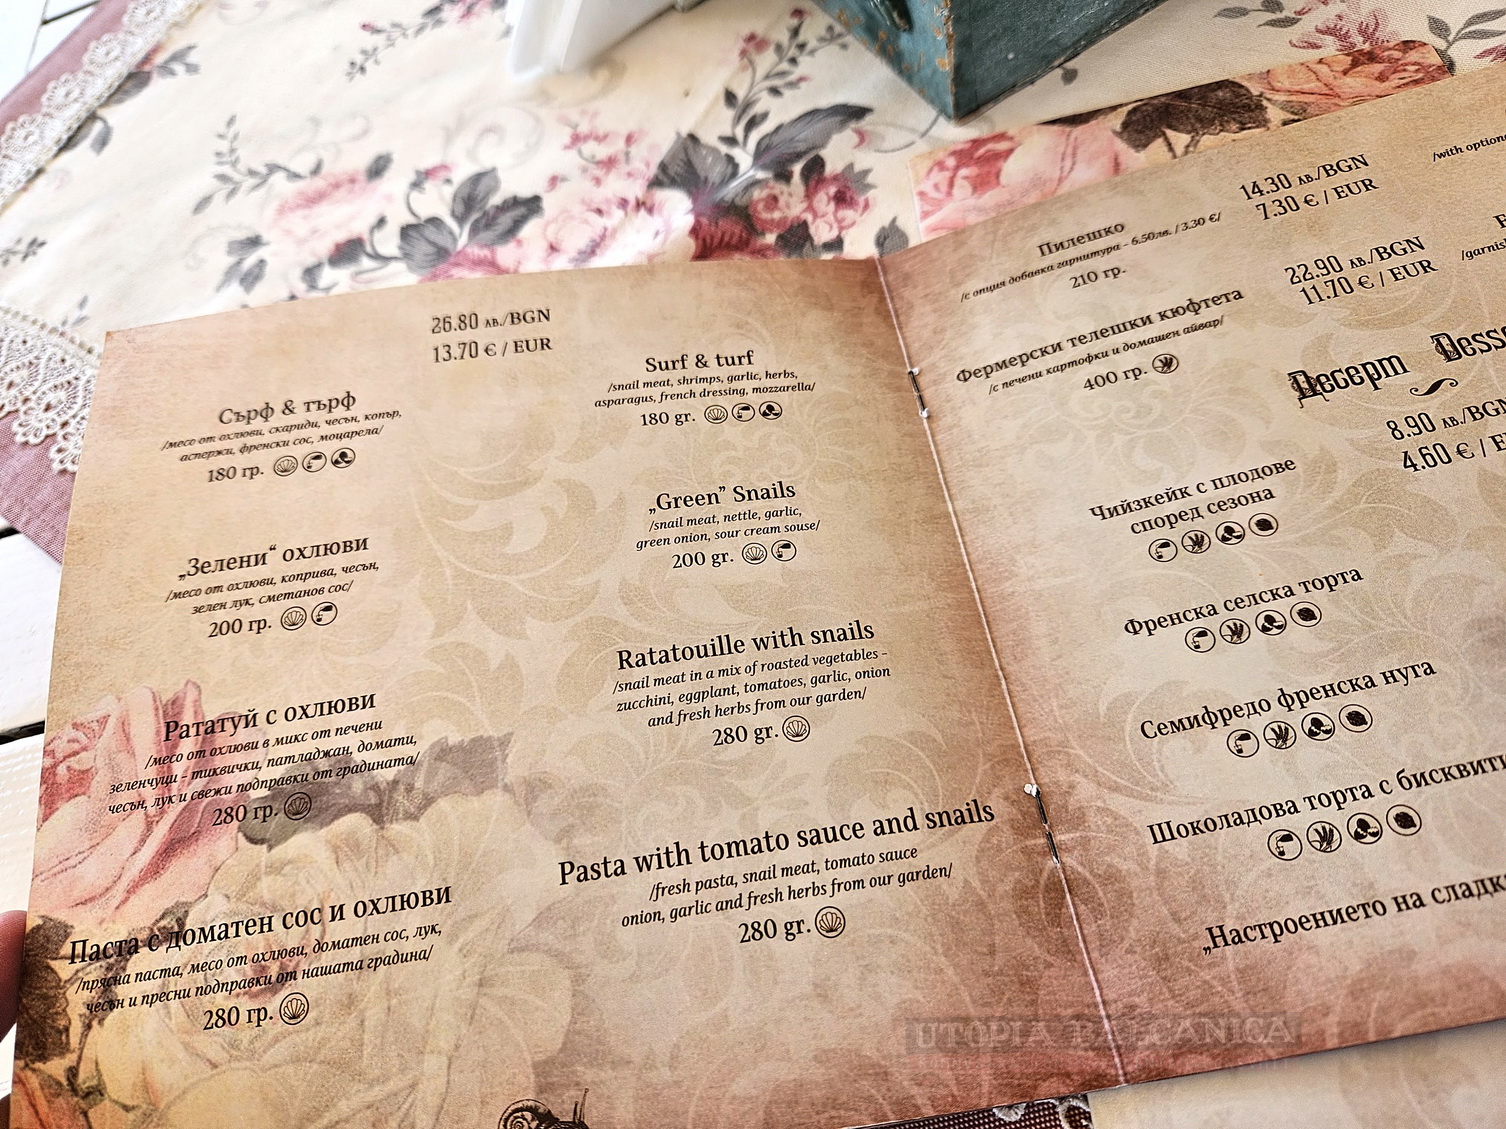 26.80 лв./BGN
13.70 € / EUR
Сърф & търф
/месо от охлюви, скариди, чесън, копър,
аспержи, френски сос, моцарела/
180 гр.
„Зелени“ охлюви
/месо от охлюви, коприва, чесън,
зелен лук, сметанов сос/
200 гр.
Рататуй с охлюви
/месо от охлюви в микс от печени
зеленчуци - тиквички, патладжан, домати,
чесън, лук и свежи подправки от градината/
280 гр.
Паста с доматен сос и охлюви
/прясна паста, месо от охлюви, доматен сос, лук,
чесън и пресни подправки от нашата градина/
280 гр.
Surf & turf
/snail meat, shrimps, garlic, herbs,
asparagus, french dressing, mozzarella/
180 gr.
„Green” Snails
/snail meat, nettle, garlic,
green onion, sour cream souse/
200 gr.
Ratatouille with snails
/snail meat in a mix of roasted vegetables -
zucchini, eggplant, tomatoes, garlic, onion
and fresh herbs from our garden/
280 gr.
Pasta with tomato sauce and snails
/fresh pasta, snail meat, tomato sauce
onion, garlic and fresh herbs from our garden/
280 gr.
14.30 лв./BGN
7.30 € / EUR
Пилешко
/с опция добавка гарнитура - 6.50лв. / 3.30 €/
210 гр.
/with option
22.90 лв./BGN
11.70 € / EUR
Фермерски телешки кюфтета
/с печени картофки и домашен айвар/
400 гр.
/garnis
Десерт Desse
8.90 лв./BGN
4.60 € / E
Чийзкейк с плодове
според сезона
Френска селска торта
Семифредо френска нуга
Шоколадова торта с бисквити
„Настроението на сладк
UTOPIA BALCANICA